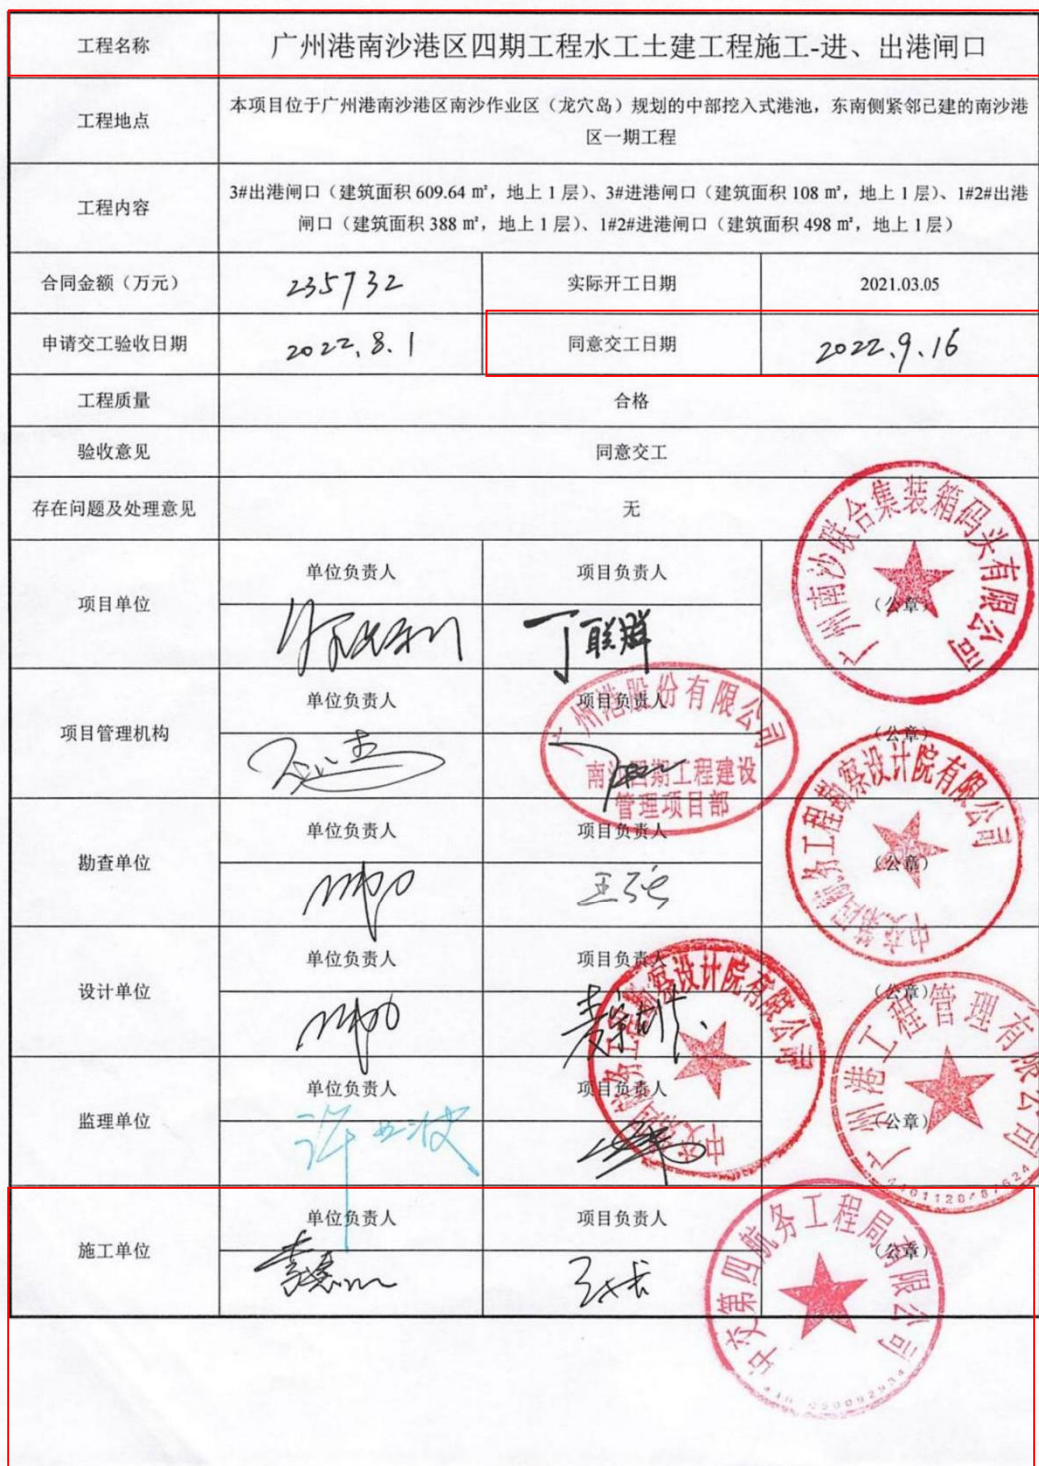 工程名称
广州港南沙港区四期工程水工土建工程施工-进、出港闸口
工程地点
本项目位于广州港南沙港区南沙作业区（龙穴岛）规划的中部挖入式港池，东南侧紧邻已建的南沙港
区一期工程
工程内容
3#出港闸口（建筑面积 609.64 ㎡，地上 1 层）、3#进港闸口（建筑面积 108 ㎡，地上 1 层）、1#2#出港
闸口（建筑面积 388 ㎡，地上 1 层）、1#2#进港闸口（建筑面积 498 ㎡，地上 1 层）
合同金额（万元）
235732
实际开工日期
2021.03.05
申请交工验收日期
2022.8.1
同意交工日期
2022.9.16
工程质量
合格
验收意见
同意交工
存在问题及处理意见
无
项目单位
单位负责人
项目负责人
丁联辉
（公章）
广州南沙联合集装箱码头有限公司
项目管理机构
单位负责人
项目负责人
（公章）
广州港股份有限公司
南沙四期工程建设
管理项目部
勘查单位
单位负责人
项目负责人
王强
（公章）
中交第四航务工程勘察设计院有限公司
设计单位
单位负责人
项目负责人
（公章）
中交第四航务工程勘察设计院有限公司
监理单位
单位负责人
项目负责人
（公章）
广州港工程管理有限公司
施工单位
单位负责人
项目负责人
（公章）
中交第四航务工程局有限公司